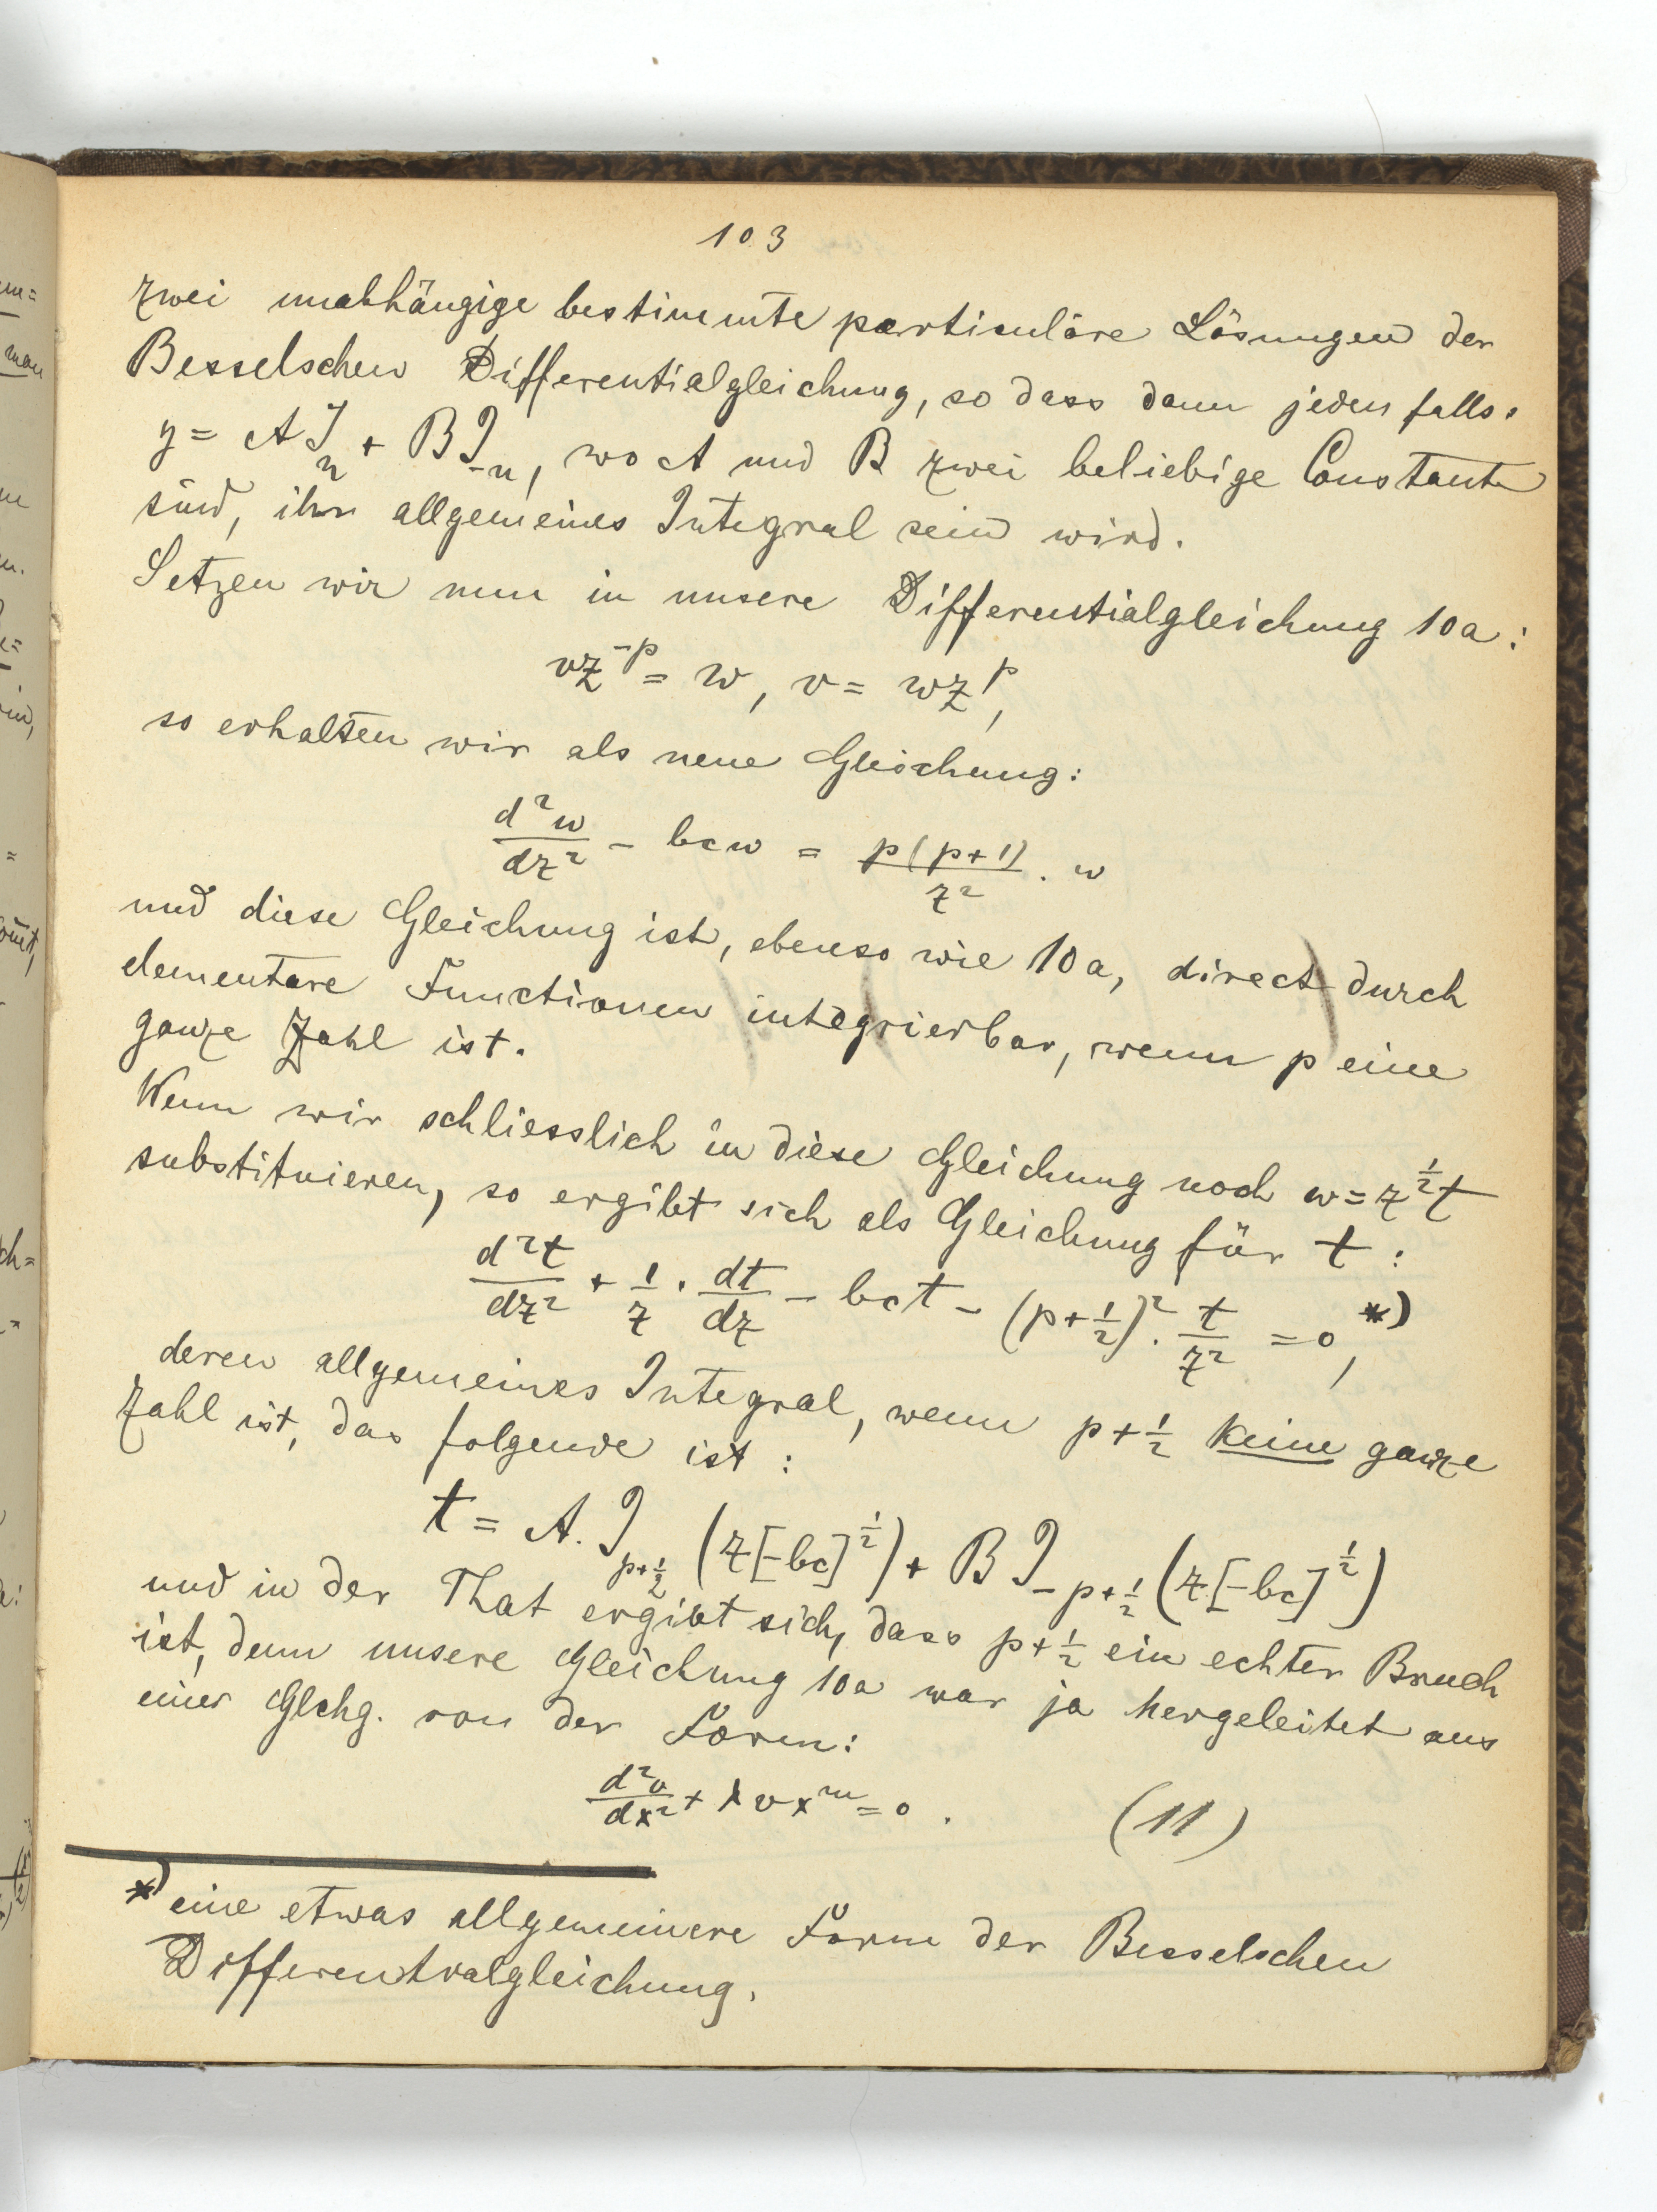 103
zwei unabhängige bestimmte particuläre Lösungen der
Besselschen Differentialgleichung, so dass dann jedenfalls
y = A J_n + B J_{-n}, wo A und B zwei beliebige Constante
sind, ihr allgemeines Integral sein wird.
Setzen wir nun in unsere Differentialgleichung 10a:
vz^{-p} = w, v = wz^p,
so erhalten wir als neue Gleichung:
d²w/dz² - bcw = p(p+1)/z² . w
und diese Gleichung ist, ebenso wie 10a, direct durch
elementare Functionen integrierbar, wenn p eine
ganze Zahl ist.
Wenn wir schliesslich in diese Gleichung noch w = z^{1/2} t
substituieren, so ergibt sich als Gleichung für t:
d²t/dz² + 1/z . dt/dz - bct - (p+1/2)² . t/z² = 0, *)
deren allgemeines Integral, wenn p+1/2 keine ganze
Zahl ist, das folgende ist:
t = A. J_{p+1/2} (z[-bc]^{1/2}) + B J_{-p+1/2} (z[-bc]^{1/2})
und in der That ergibt sich, dass p+1/2 ein echter Bruch
ist, denn unsere Gleichung 10a war ja hergeleitet aus
einer Glchg. von der Form:
d²v/dx² + λvx^m = 0. (11)
*) eine etwas allgemeinere Form der Besselschen
Differentialgleichung.